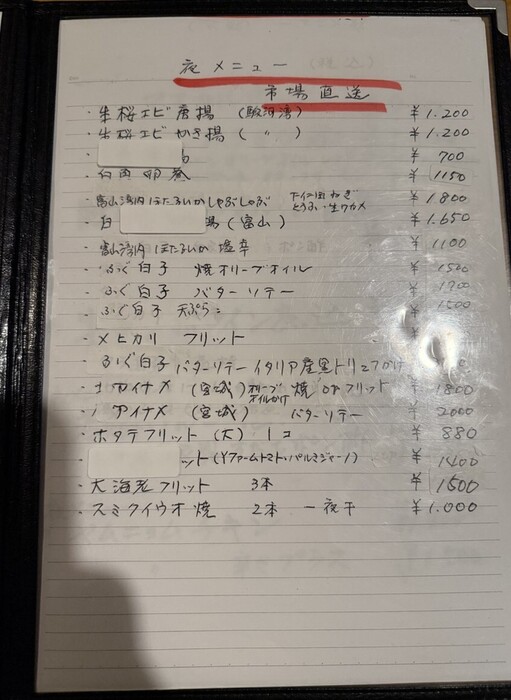 夜メニュー
市場直送
・生桜エビ唐揚 (駿河湾) ¥1.200
・生桜エビかき揚 ( 〃 ) ¥1.200
・ ¥700
・白 ¥1150
・富山湾内ほたるいかしゃぶしゃぶ ¥1.800
・白 揚(富山) ¥1.650
・富山湾内ほたるいか塩辛 ¥1100
・ふぐ白子 焼オリーブオイル ¥1500
・ふぐ白子 バターソテー
・ふぐ白子 天ぷら ¥1500
・メヒカリ フリット ¥
・ふぐ白子バターソテーイタリア産黒トリュフかけ
・アイナメ (宮城) オリーブオイルかけ 焼orフリット ¥1800
・アイナメ (宮城) バターソテー ¥2000
・ホタテフリット (大) 1コ ¥880
・ ット(Yファームトマト・パルミジャーノ) ¥1400
・大海老フリット 3本 ¥1500
・スミクイウオ焼 2本 一夜干 ¥1.000